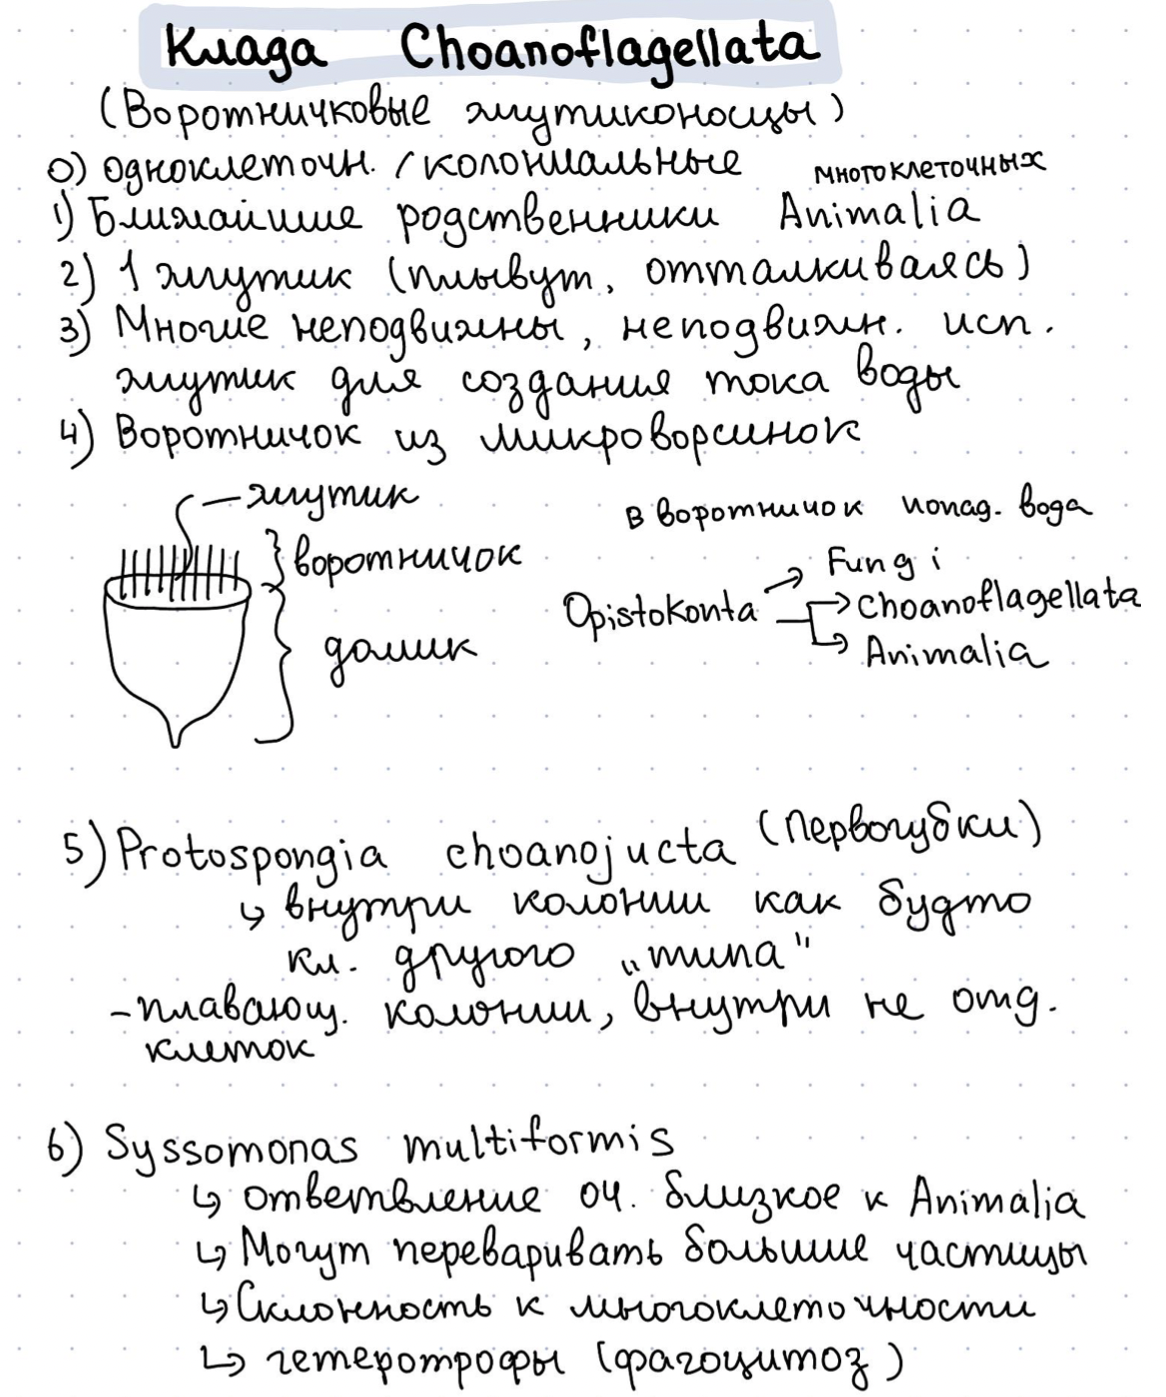 Клада Choanoflagellata
(Воротничковые жгутиконосцы)
0) одноклеточн. / колониальные
многоклеточных
1) Ближайшие родственники Animalia
2) 1 жгутик (плывут, отталкиваясь)
3) Многие неподвижны, неподвижн. исп.
жгутик для создания тока воды
4) Воротничок из микроворсинок
жгутик
в воротничок попад. вода
воротничок
Fungi
Opistokonta
Choanoflagellata
домик
Animalia
5) Protospongia choanojucta (Первогубки)
↳ внутри колонии как будто
кл. другого „типа"
- плавающ. колонии, внутри не отд.
клеток
6) Syssomonas multiformis
↳ ответвление оч. близкое к Animalia
↳ Могут переваривать большие частицы
↳ Склонность к многоклеточности
↳ гетеротрофы (фагоцитоз)